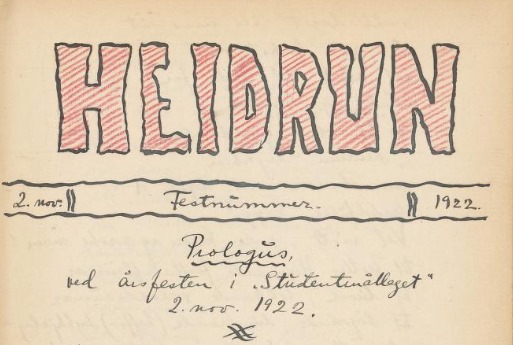 HEIDRUN
2. nov. Festnummer. 1922.
Prologus,
ved årsfesten i „Studentmållaget“
2. nov. 1922.